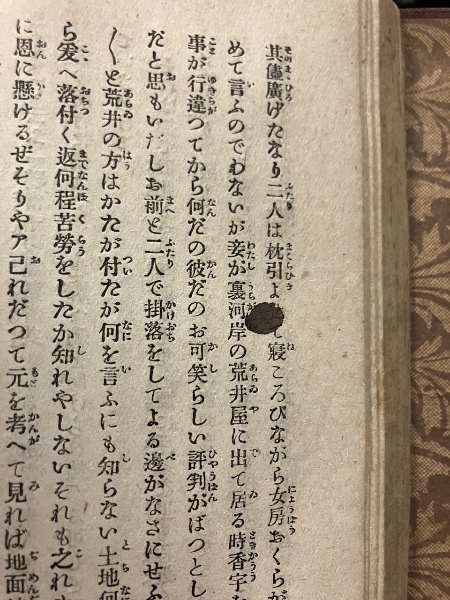 其儘廣げたなり二人は枕引よせて寢ころびながら女房おくらが
めて言ふのでわないが妾が裏河岸の荒井屋に出て居る時香宇
事が行違つてから何だの彼だのお可笑らしい評判がぱつとし
だと思もいだしお前と二人で掛落をしてよる邊がなさにせふ
〱と荒井の方はかたが付たが何を言ふにも知らない土地何
ら爰へ落付く迄何程苦勞をしたか知れやしないそれも之れも
に恩に懸けるぜそりやア己れだつて元を考へて見れば地面